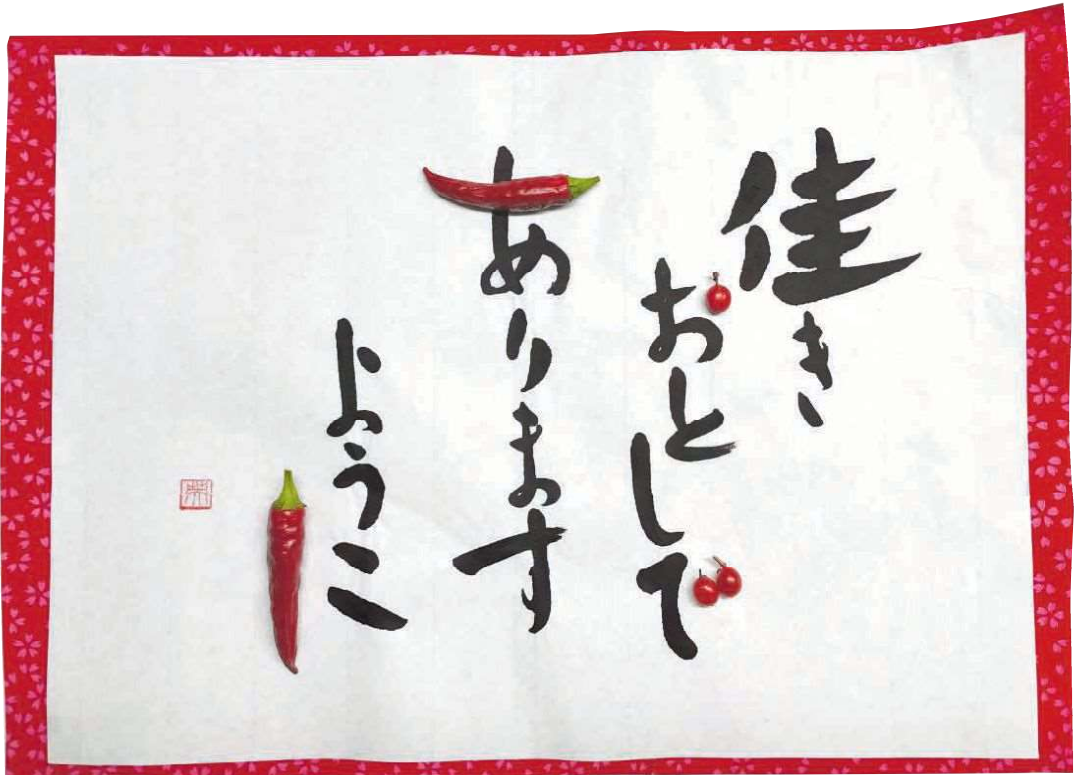 佳き
おとしで
あります
ように